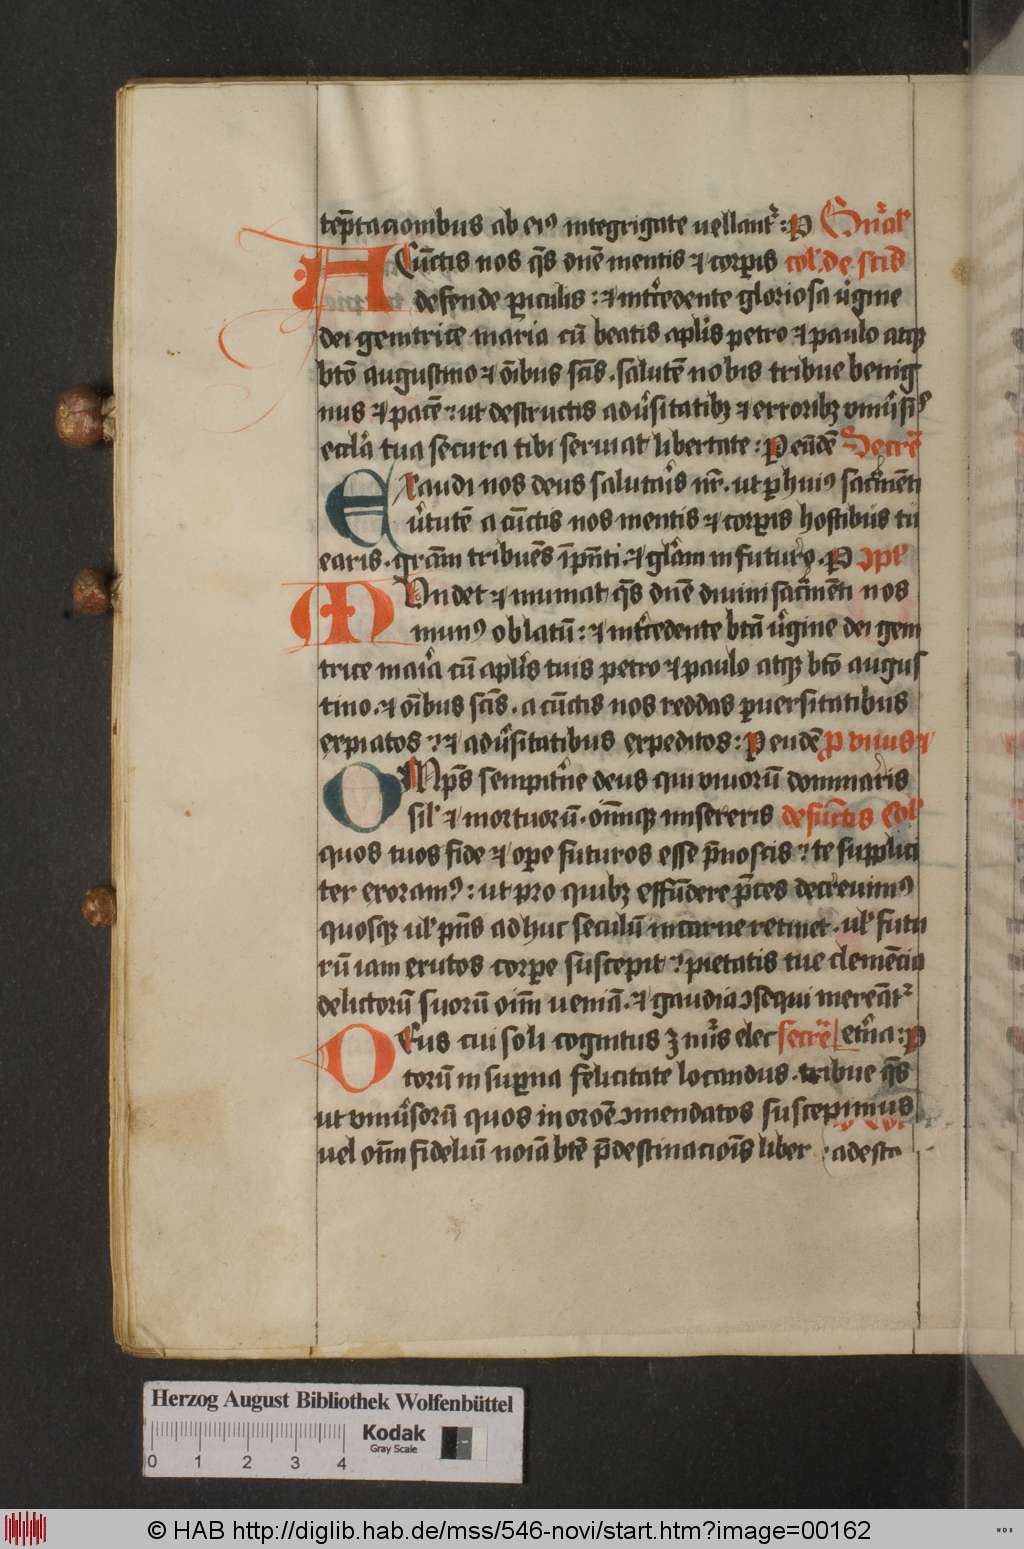 tēptacionibus ab eiꝰ integrigate uellantr̉ : P Gn̉al᷑
A Cūctis nos q̄s dn̄e mentis ⁊ corꝑis col᷑. de sc̄is
defende ꝑiculis : ⁊ int͛cedente gloriosa u͛gine
dei genitrice maria cū beatis apl̉is petro ⁊ paulo atqꝫ
bt̄o augustino ⁊ oībus sc̄is . salutē nobis tribue benig
nus ⁊ pacē : ut destructis adu͛sitatibꝫ ⁊ erroribꝫ vniu͛sis
eccl̉ia tua secura tibi seruiat libertate : P eūdē Secre᷑
E Xaudi nos deus salutar̉is nr̄ . ut ꝑ huiꝰ sacr̄mēti
u͛tutē a cūctis nos mentis ⁊ corꝑis hostibus tu
earis . gr̄am tribuēs ī p̄nti . ⁊ gl̉am in futuro . P ɔpl᷑
M Vndet ⁊ muniat q̄s dn̄e diuini sacr̄mēti nos
munꝰ oblatū : ⁊ int͛cedente bt̄a u͛gine dei geni
trice mar̉ia cū apl̉is tuis petro ⁊ paulo atqꝫ bt̄o augus
tino . ⁊ oībus sc̄is . a cūctis nos reddas ꝑuersitatibus
expiatos : ⁊ adu͛sitatibus expeditos : P eundē ꝓ viuis ⁊
O Mp̄s sempit͛ne deus qui viuorū dominar̉is
sil᷑ ⁊ mortuorū . oīmqꝫ misereris defūctis Col᷑
quos tuos fide ⁊ oꝑe futuros esse p̄noscis : te supplici
ter exoramꝰ : ut pro quibꝫ effūdere p̄ces decreuimꝰ
quosqꝫ ul᷑ p̄ns ad huc seculū in carne retinet . ul᷑ futu
rū iam exutos corꝑe suscepit : pietatis tue clemēcia
delictorū suorū oīm ueniā . ⁊ gaudia ɔsequi mereātr̉
D Eus cui soli cognitus ē nūs elec secre᷑ et͛na : P
torū in suꝑna felicitate locandus . tribue q̄s
ut vniu͛sorū quos in oroē ɔmendatos suscepimus
uel oīm fideliū noīa btē p̄destinacioīs liber adesto
Herzog August Bibliothek Wolfenbüttel
0 1 2 3 4
Kodak
Gray Scale
© HAB http://diglib.hab.de/mss/546-novi/start.htm?image=00162